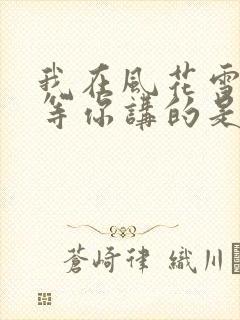 我在風花雪
等你講的是
蒼崎律 織川